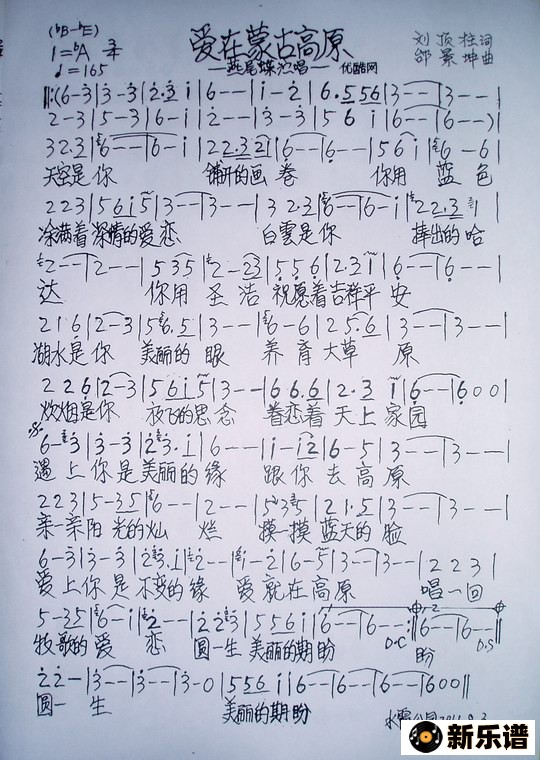 (♭B-♭E)
1=♭A 3/4
♩=165
爱在蒙古高原
—燕尾蝶演唱— 优酷网
刘顶柱词
邰景坤曲
‖:(6-3|3-3|2·3 i|6--|i-2|6·5 56|3--|3--|
2-3|5-3|6-i|2--|3-3|5 6 i|6--|6--)|
3 2·3|6--|6-i|2 2·3 2 1|6--|6--|5 6 i|6-6|
天空是你 铺开的画卷 你用蓝色
2 2 3|5 6 i 5|3--|3--|3 2·3|6--|6-i|2 2·3 1|
涂满着深情的爱恋 白雲是你 捧出的哈
2--|2--|5 3 5|2-2 3|5 5 6|2·3 i|6--|6--|
达 你用圣洁祝愿着吉祥平安
2 1 6|2-3|5 6·5|3--|6-6|2 5·6|3--|3--|
湖水是你 美丽的眼 养育大草原
2 2 6|2-3|5 6 i 5|3--|6 6·6|2·3 i|6--|6 0 0|
炊烟是你 放飞的思念 眷恋着天上家园
6-3|3-3|2 3·i|6--|i-i 2|6-5|3--|3--|
遇上你是美丽的缘 跟你去高原
2 2 3|5-3 5|6--|2--|5 3 5|2 1·5|3--|3--|
亲一亲阳光的灿烂 摸一摸蓝天的脸
6-3|3-3|2 3·i|2--|i-2|6-5|3--|3--|2 2 3|
爱上你是不变的缘 爱就在高原 唱一回
5-3 5|6-i|2--|2 2 3|5 5 6 i|6--|6--:‖6--|6--‖
牧歌的爱恋 圆一生美丽的期盼 D·C 盼 D.S
2 2-|3--|3--|3-0|5 5 6 i|6--|6--|6--|6 0 0‖
圆一生 美丽的期盼
新乐谱